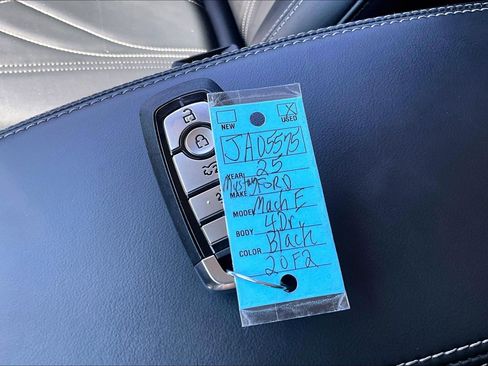 NEW USED
JA05575
YEAR 25
Mustang
MAKE FORD
MODEL Mach E
BODY 4Dr
COLOR Black
20F2